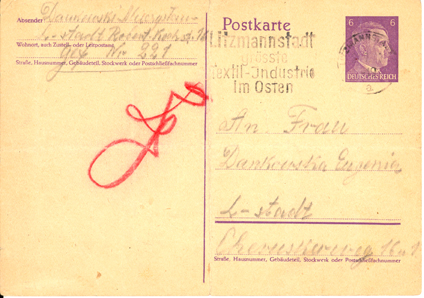 Absender:
L-stadt Robert Koch
Wohnort, auch Zustell- oder Leitpostamt
Gef. Nr. 221
Straße, Hausnummer, Gebäudeteil, Stockwerk oder Postschließfachnummer
Postkarte
Litzmannstadt
grösste
Textil-Industrie
im Osten
6 6
DEUTSCHES REICH
An Frau
Dankowska Eugenia
L-stadt
Straße, Hausnummer, Gebäudeteil, Stockwerk oder Postschließfachnummer